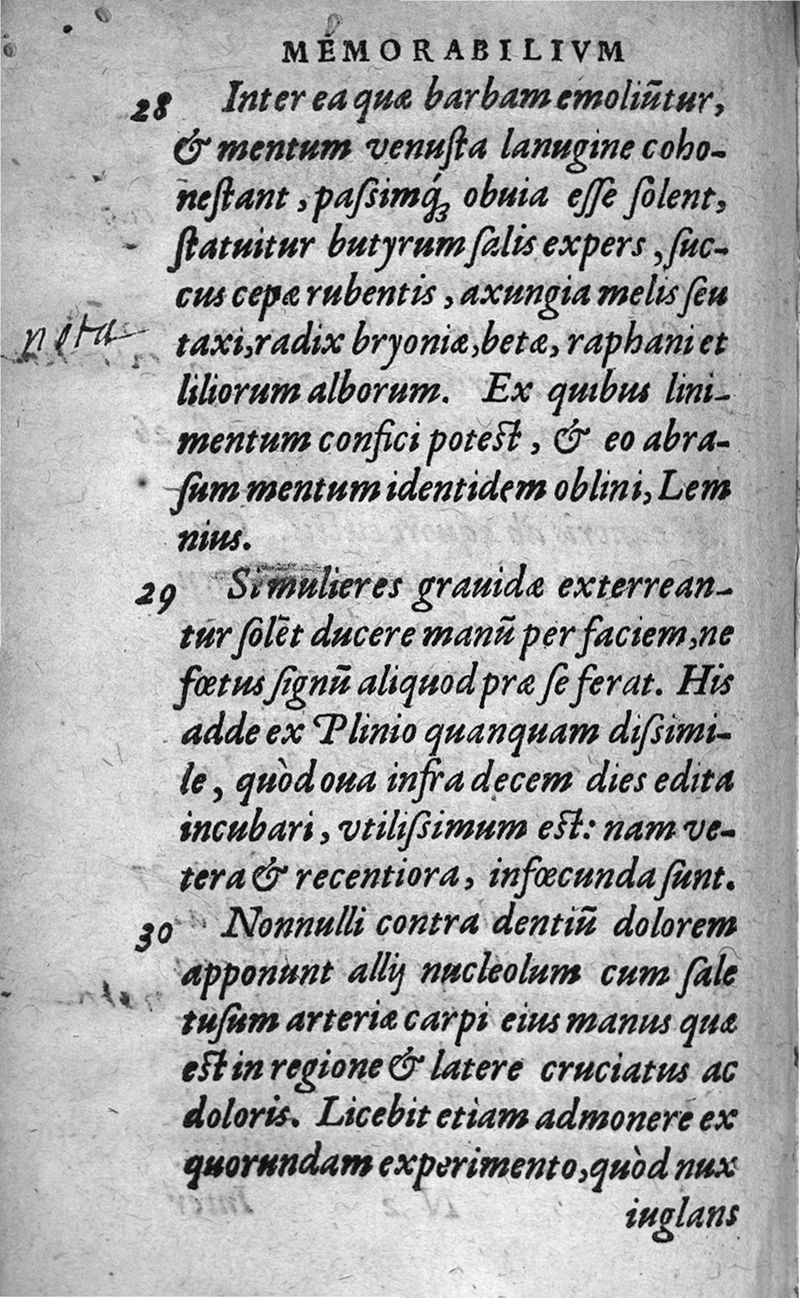 MEMORABILIVM
28 Inter ea quæ barbam emoliũtur,
& mentum venuſta lanugine coho-
neſtant, paſsimq́ꝫ obuia eſſe ſolent,
ſtatuitur butyrum ſalis expers, ſuc-
cus cepæ rubentis, axungia melis ſeu
nota
taxi, radix bryoniæ, betæ, raphani et
liliorum alborum. Ex quibus lini-
mentum confici poteſt, & eo abra-
ſum mentum identidem oblini, Lem
nius.
29 Si mulieres grauidæ exterrean-
tur ſolẽt ducere manũ per faciem, ne
fœtus ſignũ aliquod præ ſe ferat. His
adde ex Plinio quanquam diſsimi-
le, quòd oua infra decem dies edita
incubari, vtiliſsimum eſt: nam ve-
tera & recentiora, infœcunda ſunt.
30 Nonnulli contra dentiũ dolorem
apponunt allij nucleolum cum ſale
tuſum arteriæ carpi eius manus quæ
eſt in regione & latere cruciatus ac
doloris. Licebit etiam admonere ex
quorundam experimento, quòd nux
iuglans